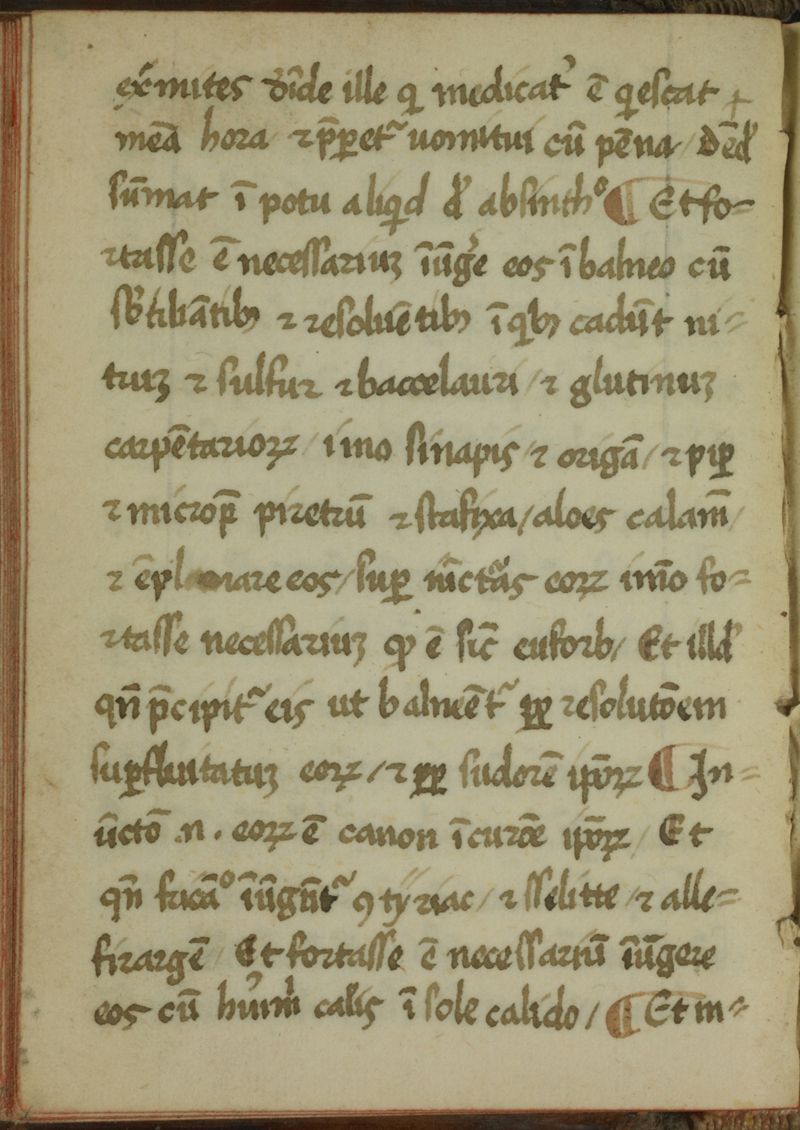 ex̄mites deīde ille qi medicat᾽ ē qiescat p
mēa hora ⁊ p̄ꝑet᷑ uomitui cū pēna / dēd᾽
sūmat ī potu aliqid d᾽ absinthº ¶ Et fo=
rtasse ē necessariuꝫ īūg᾽e eos ī balneo cū
sb᾽tiliātibꝫ ⁊ resoluētibꝫ ī qibꝫ cadūt ni=
truꝫ ⁊ sulfur ⁊ baccelauri / ⁊ glutinuꝫ
carpētarioꝝ / imo sinapis / ⁊ origā / ⁊ piꝑ
⁊ microp̄ piretrū ⁊ stafixa / aloes calam̄ /
⁊ ēpl are eos / suꝑ eoꝝ im̄o fo=
rtasse necessariuꝫ ꝙ ē sic̄ euforb / Et illd᾽
qn̄ p̄cipit᷑ eis ut balneēt᷑ ꝓꝑ resolutōem
suꝑfluitatuꝫ eoꝝ / ⁊ ꝓꝑ sudorē ip̄oꝝ ¶ In=
ūctō .n. eoꝝ ē canon ī curōe ip̄oꝝ / Et
qn̄ fricāº īūgūt᷑ ꝯ tÿriac / ⁊ sselitte / ⁊ alle=
firargē / Et fortasse ē necessariū īūgere
eos cū calis ī sole calido / ¶ Et in=